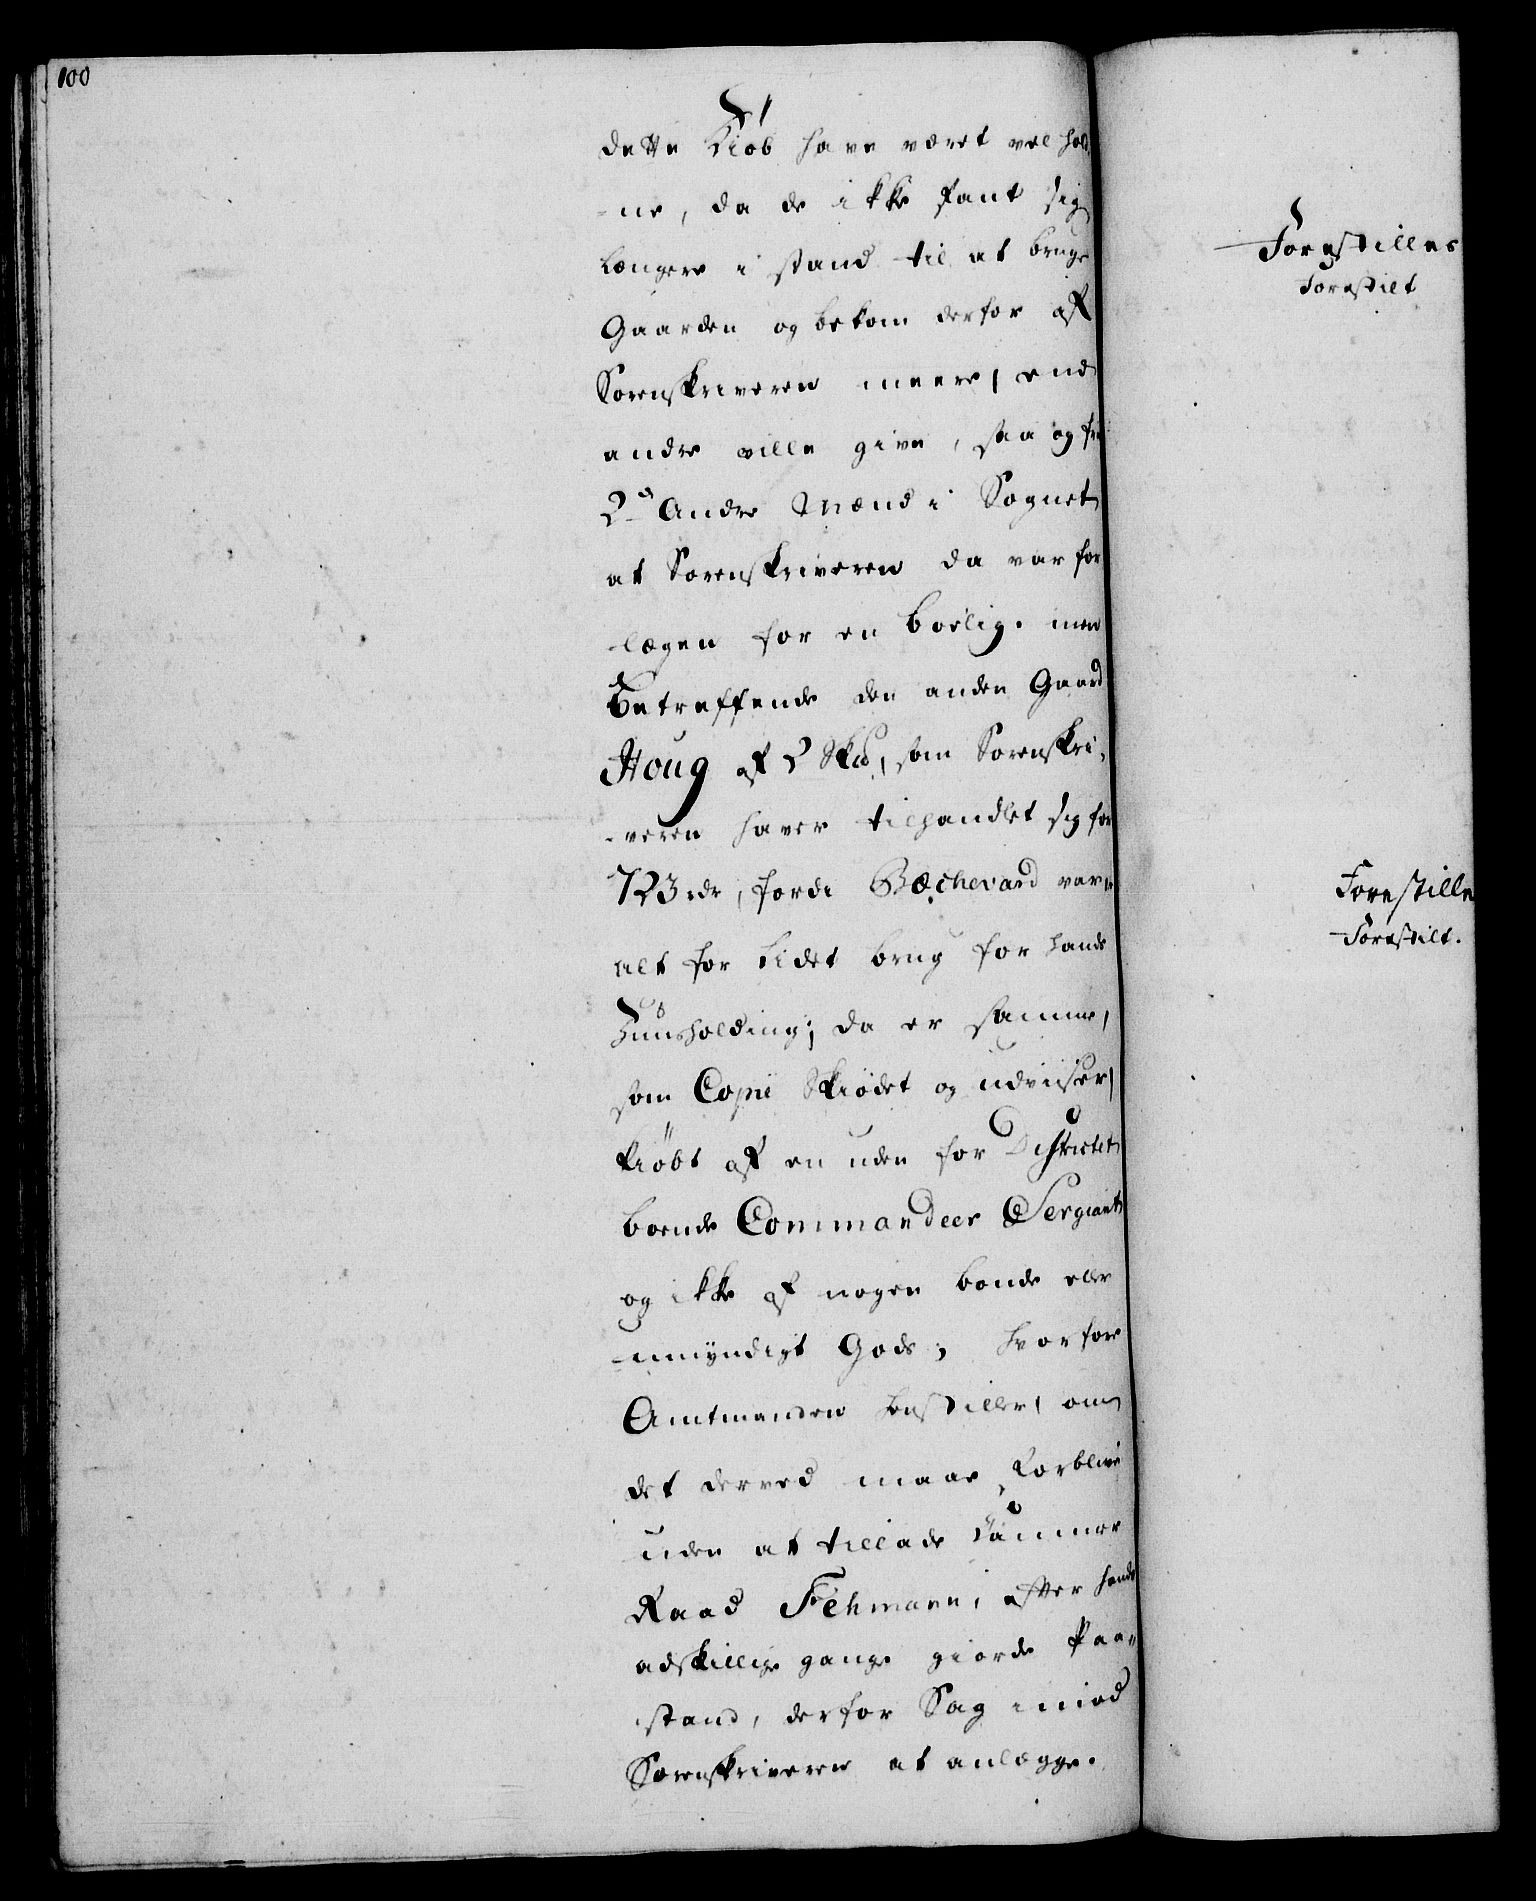 100
dette Kiöb have været vel hold,
-ne, da de ikke fant sig
længere i stand til at bruge
Gaarden og bekom derfor af
Sorenskriveren meere, end
andre ville give, saa og fra
2de Andre Mænd i Sognet
at Sorenskriveren da var for
lægen for en boelig. men
Betreffende den anden Gaard
Houg af 2 Skd, som Sorenskri,
-veren haver tilhandlet sig for
723 rdr, fordi Bæchevard var
alt for lidet brug for hands
Huusholding; da er samme,
som Copie Skiödet og udviiser,
kiöbt af en uden for Districtet
boende Commandeer Sergiant
og ikke af nogen bonde eller
umyndigt Gods; hvorfore
Amtmanden henstiller, om
det derved maae forblive
uden at tillade Cammer
Raad Fehmann, efter hands
adskillige gange giorde Paa-
stand, derfor Sag imod
Sorenskriveren at anlægge.
Forestilles
Forestilt
Forestille
Forestilt.